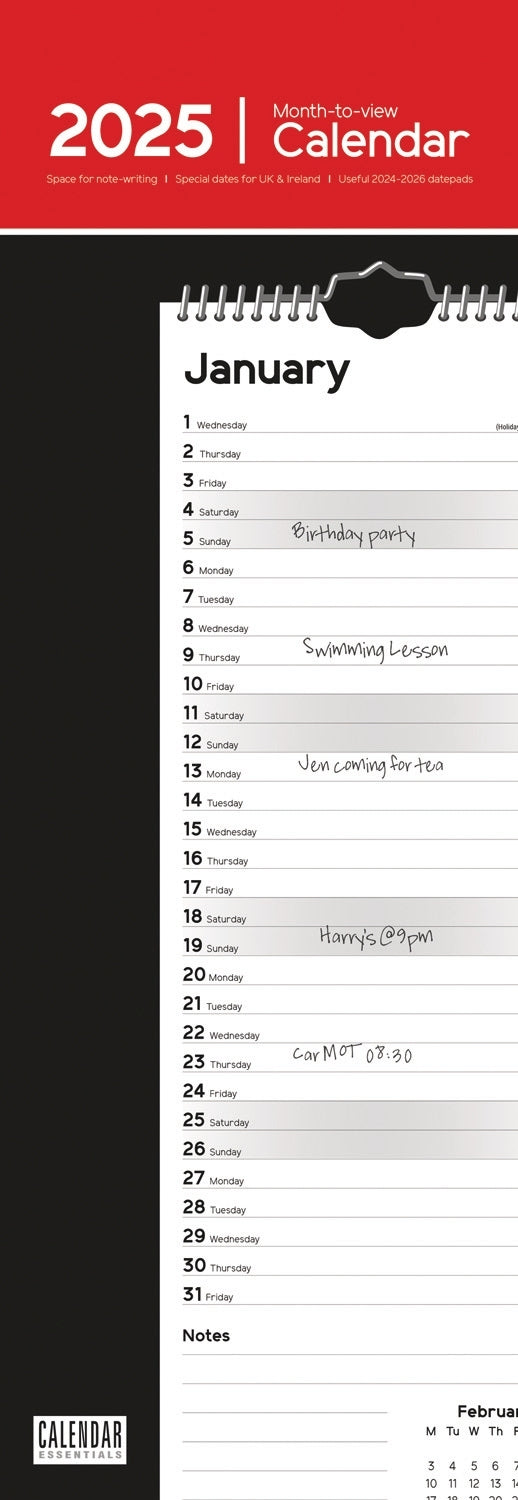 2025 | Month-to-view
Calendar
Space for note-writing | Special dates for UK & Ireland | Useful 2024-2026 datepads
January
1 Wednesday (Holiday
2 Thursday
3 Friday
4 Saturday
5 Sunday Birthday party
6 Monday
7 Tuesday
8 Wednesday
9 Thursday Swimming Lesson
10 Friday
11 Saturday
12 Sunday
13 Monday Jen coming for tea
14 Tuesday
15 Wednesday
16 Thursday
17 Friday
18 Saturday
19 Sunday Harry's @9pm
20 Monday
21 Tuesday
22 Wednesday
23 Thursday Car MOT 08:30
24 Friday
25 Saturday
26 Sunday
27 Monday
28 Tuesday
29 Wednesday
30 Thursday
31 Friday
Notes
Februar
M Tu W Th F
3 4 5 6 7
10 11 12 13 14
17 18 19 20 21
CALENDAR
ESSENTIALS